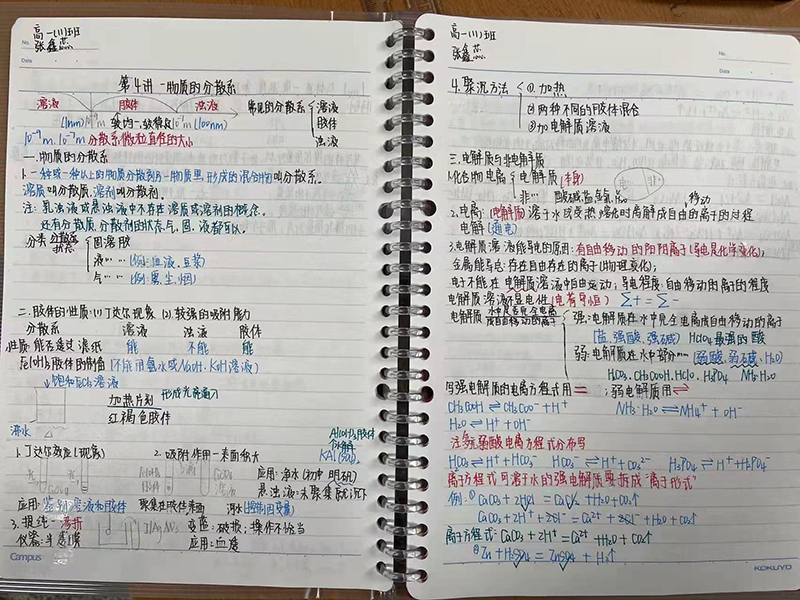 高一(11)班
张鑫
No.
Date
第4讲 物质的分散系
溶液 胶体 浊液 常见的分散系 溶液
胶体
浊液
(1nm) (100nm)
10⁻⁹m. 10⁻⁷m 分散系微粒直径的大小
一.物质的分散系
1.一种或一种以上的物质分散到另一物质里,形成的混合物叫分散系。
溶质叫分散质,溶剂叫分散剂。
注:乳浊液或悬浊液中不存在溶质或溶剂的概念。
还有分散质、分散剂的状态气、固、液都可以。
分类 分散系 状态 固溶胶
液…… (例:血液.豆浆)
气…… (例:雾.尘.烟)
二.胶体的性质:(1)丁达尔现象 (2)较强的吸附能力
分散系 溶液 浊液 胶体
性质:能否透过滤纸 能 不能 能
Fe(OH)₃胶体的制备(不能用氨水或NaOH、KOH溶液)
↓饱和FeCl₃溶液
加热片刻 形成光亮通入
红褐色胶体
沸水
Al(OH)₃胶体
KAl(SO₄)₂
1.丁达尔效应(现象) 2.吸附作用—表面积大
应用:净水(如:明矾)
悬浊液:未聚集就沉下
应用:鉴别溶液和胶体 聚集在胶体表面 河水(控制因变量)
3.提纯—渗析
仪器:半透膜
应用:血透
Campus
高一(11)班
张鑫
No.
Date
4.聚沉方法 ①.加热
②两种不同的胶体混合
③加电解质溶液
三.电解质与非电解质
1.化合物电离 电解质(本身)
非… 酸碱盐
移动
2.电离:(电解质)溶于水或受热熔化时离解成自由的离子的过程
电解(通电)
3.电解质溶液能导电的原因:有自由移动的阴阳离子(导电是化学变化);
金属能导电:存在自由存在的离子(物理变化);
电子不能在电解质溶液中自由运动;导电程度:自由移动的离子的程度
电解质溶液不显电性(电荷守恒) Σ+ = Σ-
电解质 水中是否完全电离成自由移动的离子 强:电解质在水中完全电离成自由移动的离子
(盐、强酸、强碱) HClO₄最强的酸
弱:电解质在水中部分…… (弱酸、弱碱、H₂O)
H₂CO₃、CH₃COOH、HClO、H₃PO₄ NH₃·H₂O
写强电解质的电离方程式用= ;弱电解质用⇌
CH₃COOH ⇌ CH₃COO⁻ + H⁺ NH₃·H₂O ⇌ NH₄⁺ + OH⁻
H₂O ⇌ H⁺ + OH⁻
注:多元弱酸电离方程式分布写
H₂CO₃ ⇌ H⁺ + HCO₃⁻ HCO₃⁻ ⇌ H⁺ + CO₃²⁻ H₃PO₄ ⇌ H⁺ + H₂PO₄⁻
离子方程式 可溶于水的强电解质要拆成“离子形式”
例:① CaCO₃ + 2HCl = CaCl₂ + H₂O + CO₂↑
CaCO₃ + 2H⁺ + 2Cl⁻ = Ca²⁺ + 2Cl⁻ + H₂O + CO₂↑
离子方程式:CaCO₃ + 2H⁺ = Ca²⁺ + H₂O + CO₂↑
② Zn + H₂SO₄ = ZnSO₄ + H₂↑
KOKUYO